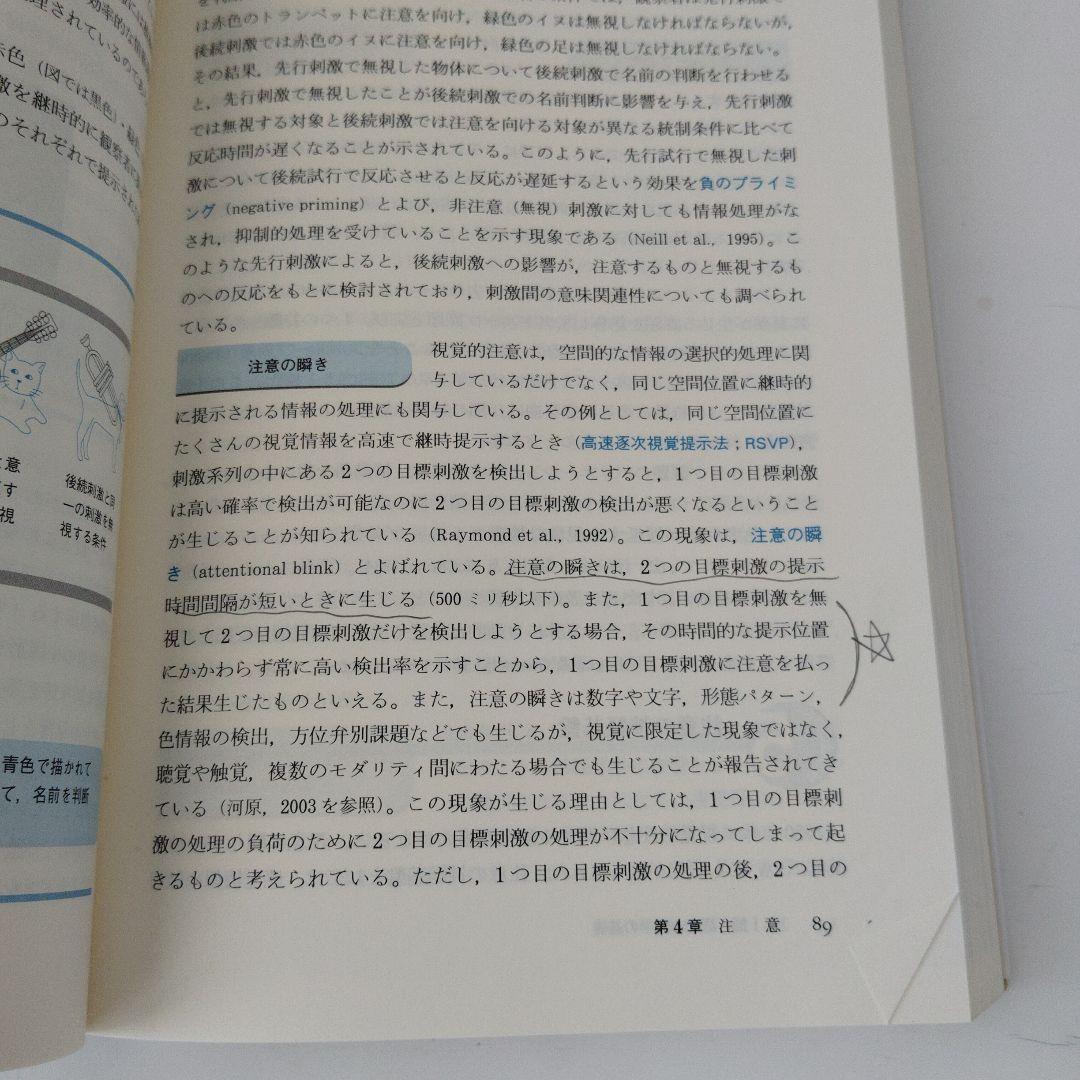 は赤色のトランペットに注意を向け，緑色のイヌは無視しなければならないが，
後続刺激では赤色のイヌに注意を向け，緑色の足は無視しなければならない。
その結果，先行刺激で無視した物体について後続刺激で名前の判断を行わせる
と，先行刺激で無視したことが後続刺激での名前判断に影響を与え，先行刺激
では無視する対象と後続刺激では注意を向ける対象が異なる統制条件に比べて
反応時間が遅くなることが示されている。このように，先行試行で無視した刺
激について後続試行で反応させると反応が遅延するという効果を負のプライミ
ング（negative priming）とよび，非注意（無視）刺激に対しても情報処理がな
され，抑制的処理を受けていることを示す現象である（Neill et al., 1995）。こ
のような先行刺激によると，後続刺激への影響が，注意するものと無視するも
のへの反応をもとに検討されており，刺激間の意味関連性についても調べられ
ている。
注意の瞬き
視覚的注意は，空間的な情報の選択的処理に関
与しているだけでなく，同じ空間位置に継時的
に提示される情報の処理にも関与している。その例としては，同じ空間位置に
たくさんの視覚情報を高速で継時提示するとき（高速逐次視覚提示法；RSVP），
刺激系列の中にある２つの目標刺激を検出しようとすると，１つ目の目標刺激
は高い確率で検出が可能なのに２つ目の目標刺激の検出が悪くなるということ
が生じることが知られている（Raymond et al., 1992）。この現象は，注意の瞬
き（attentional blink）とよばれている。注意の瞬きは，２つの目標刺激の提示
時間間隔が短いときに生じる（500 ミリ秒以下）。また，１つ目の目標刺激を無
視して２つ目の目標刺激だけを検出しようとする場合，その時間的な提示位置
にかかわらず常に高い検出率を示すことから，１つ目の目標刺激に注意を払っ
た結果生じたものといえる。また，注意の瞬きは数字や文字，形態パターン，
色情報の検出，方位弁別課題などでも生じるが，視覚に限定した現象ではなく，
聴覚や触覚，複数のモダリティ間にわたる場合でも生じることが報告されてき
ている（河原，2003 を参照）。この現象が生じる理由としては，１つ目の目標刺
激の処理の負荷のために２つ目の目標刺激の処理が不十分になってしまって起
きるものと考えられている。ただし，１つ目の目標刺激の処理の後，２つ目の
第４章 注 意 89
後続刺激と同
一の刺激を無
視する条件
青色で描かれて
て，名前を判断